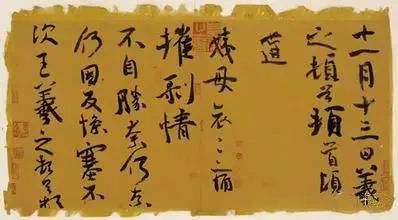 十一月十三日羲
之頓首頓首頃
遘
姨母哀哀痛
摧剝情
不自勝奈何奈
何因反慘塞不
次王羲之頓首頓